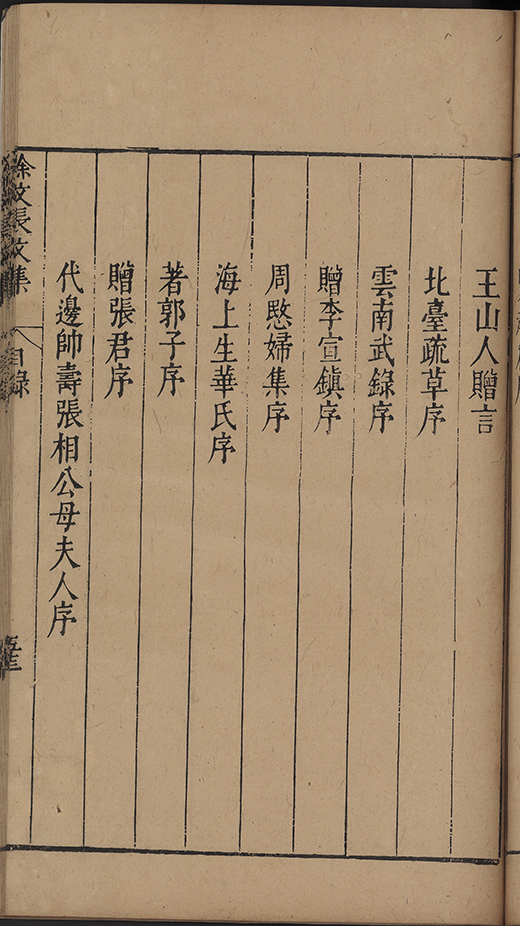 王山人贈言
北臺疏草序
雲南武錄序
贈李宣鎮序
周愍婦集序
海上生華氏序
著郭子序
贈張君序
代邊帥壽張相公母夫人序
徐文長文集
目錄